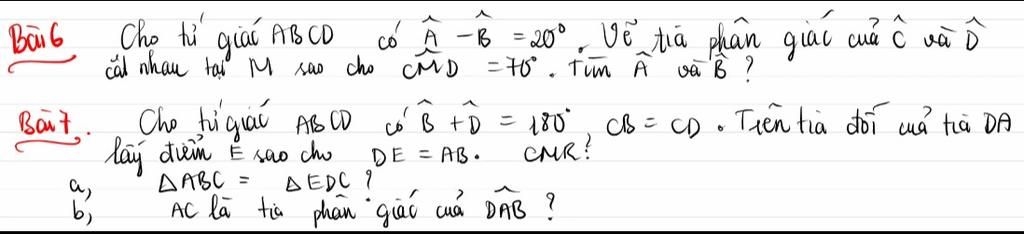 Bài 6 Cho tứ giác ABCD có Â - B̂ = 20°. Vẽ tia phân giác của Ĉ và D̂
cắt nhau tại M sao cho CM̂D = 70°. Tìm Â và B̂ ?
Bài 7. Cho tứ giác ABCD có B̂ + D̂ = 180°, CB = CD. Trên tia đối của tia DA
lấy điểm E sao cho DE = AB. CMR?
a, ΔABC = ΔEDC ?
b, AC là tia phân giác của DÂB ?